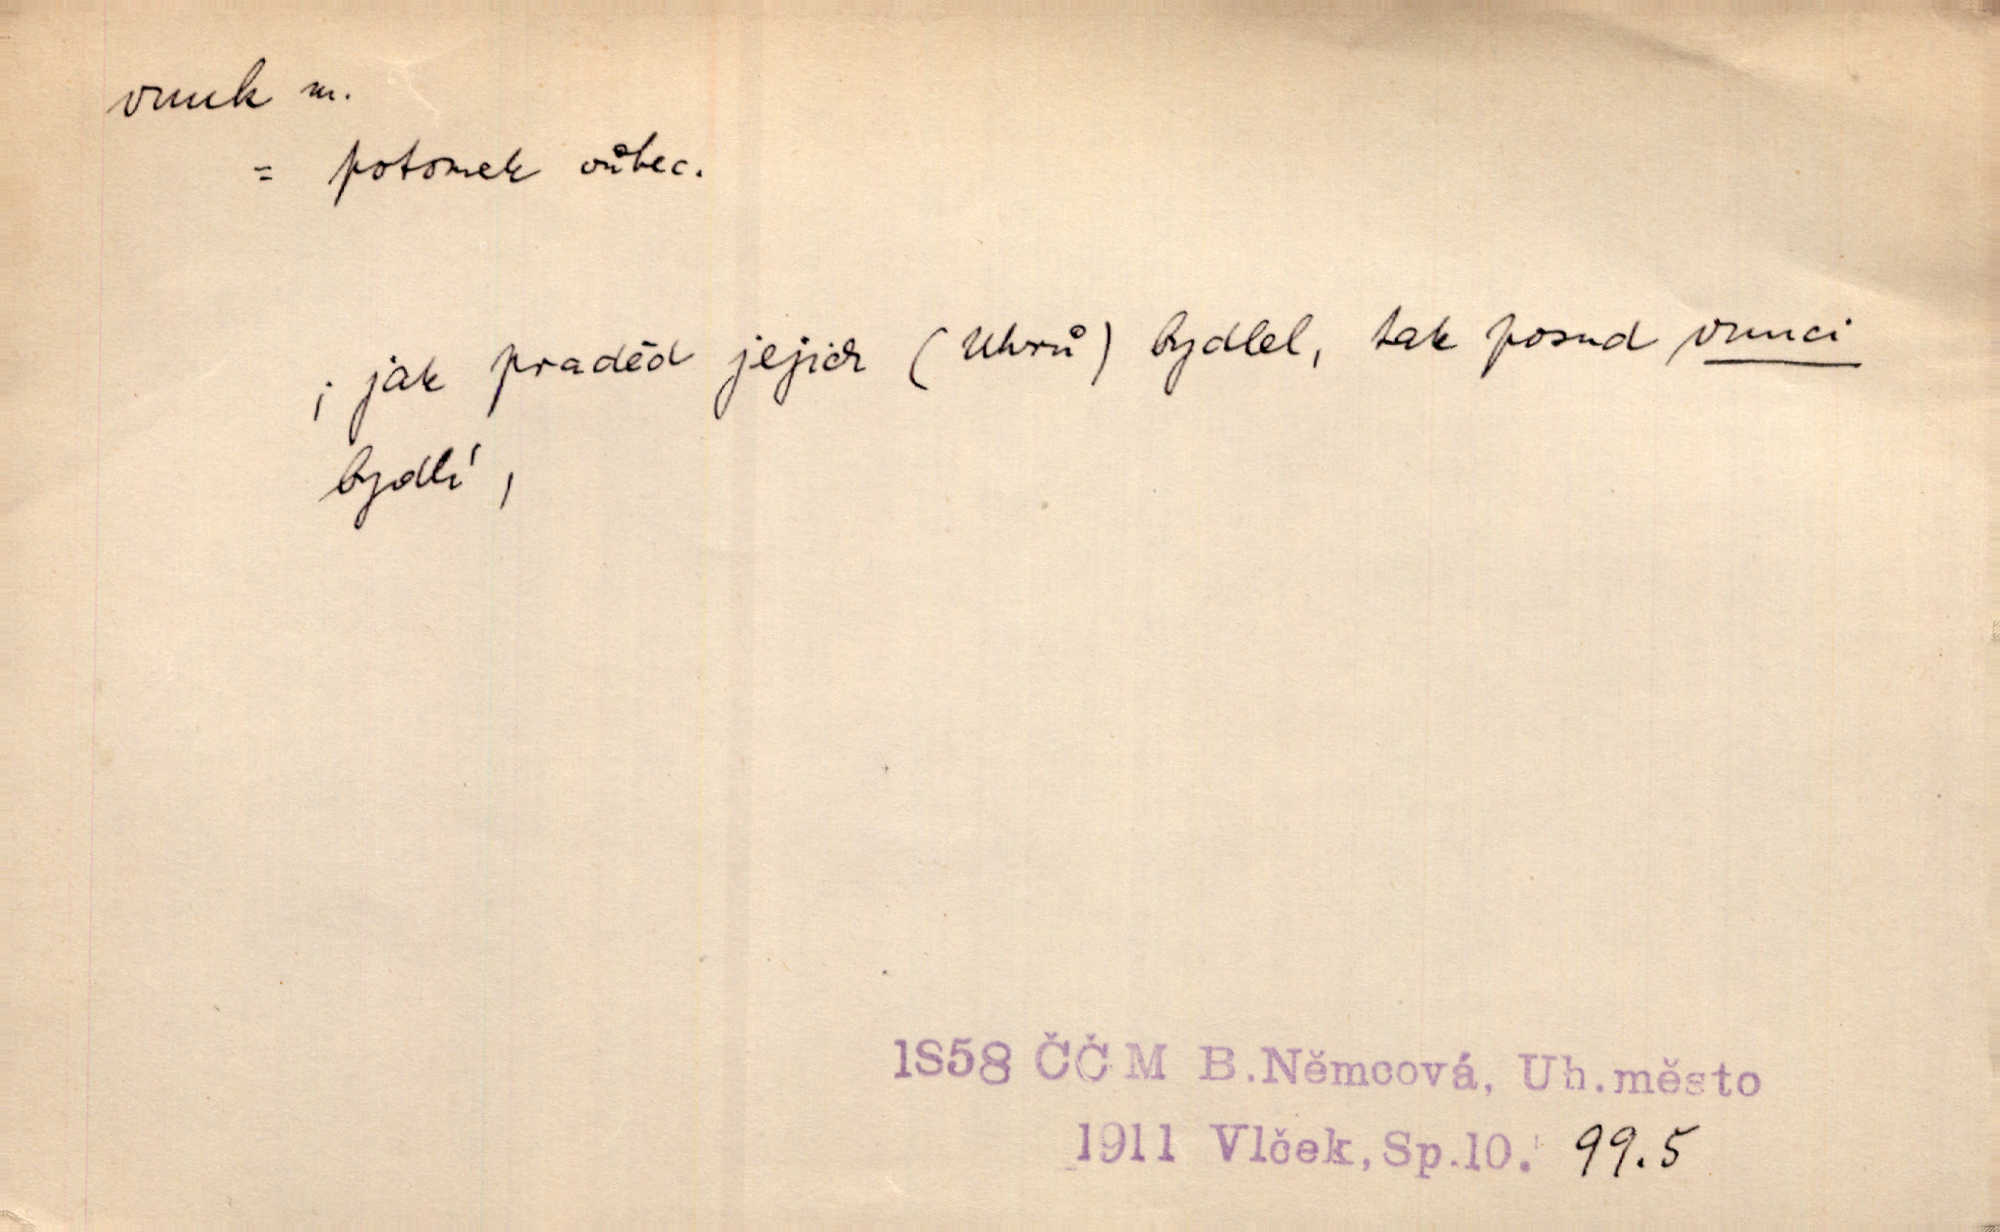 vnuk m.
= potomek vůbec.
; jak praděd jejich (Uhrů) bydlel, tak posud vnuci
bydlí,
1858 ČČM B.Němcová, Uh.město
1911 Vlček, Sp.10. 99.5